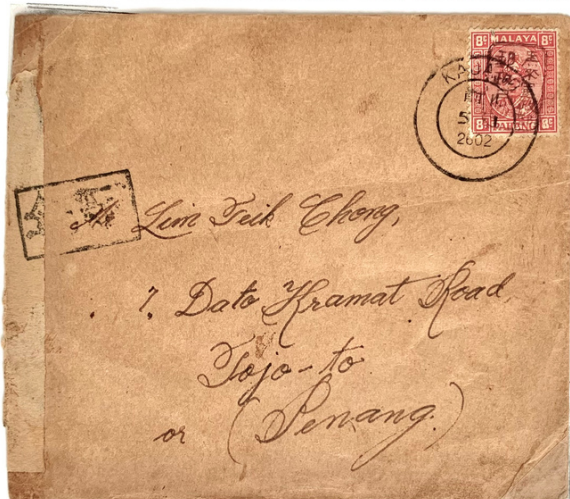 8c MALAYA 8c
8c PAHANG 8c
2602
Mr Lim Teik Chong,
7. Dato Kramat Road
Tojo-to
or (Penang.)